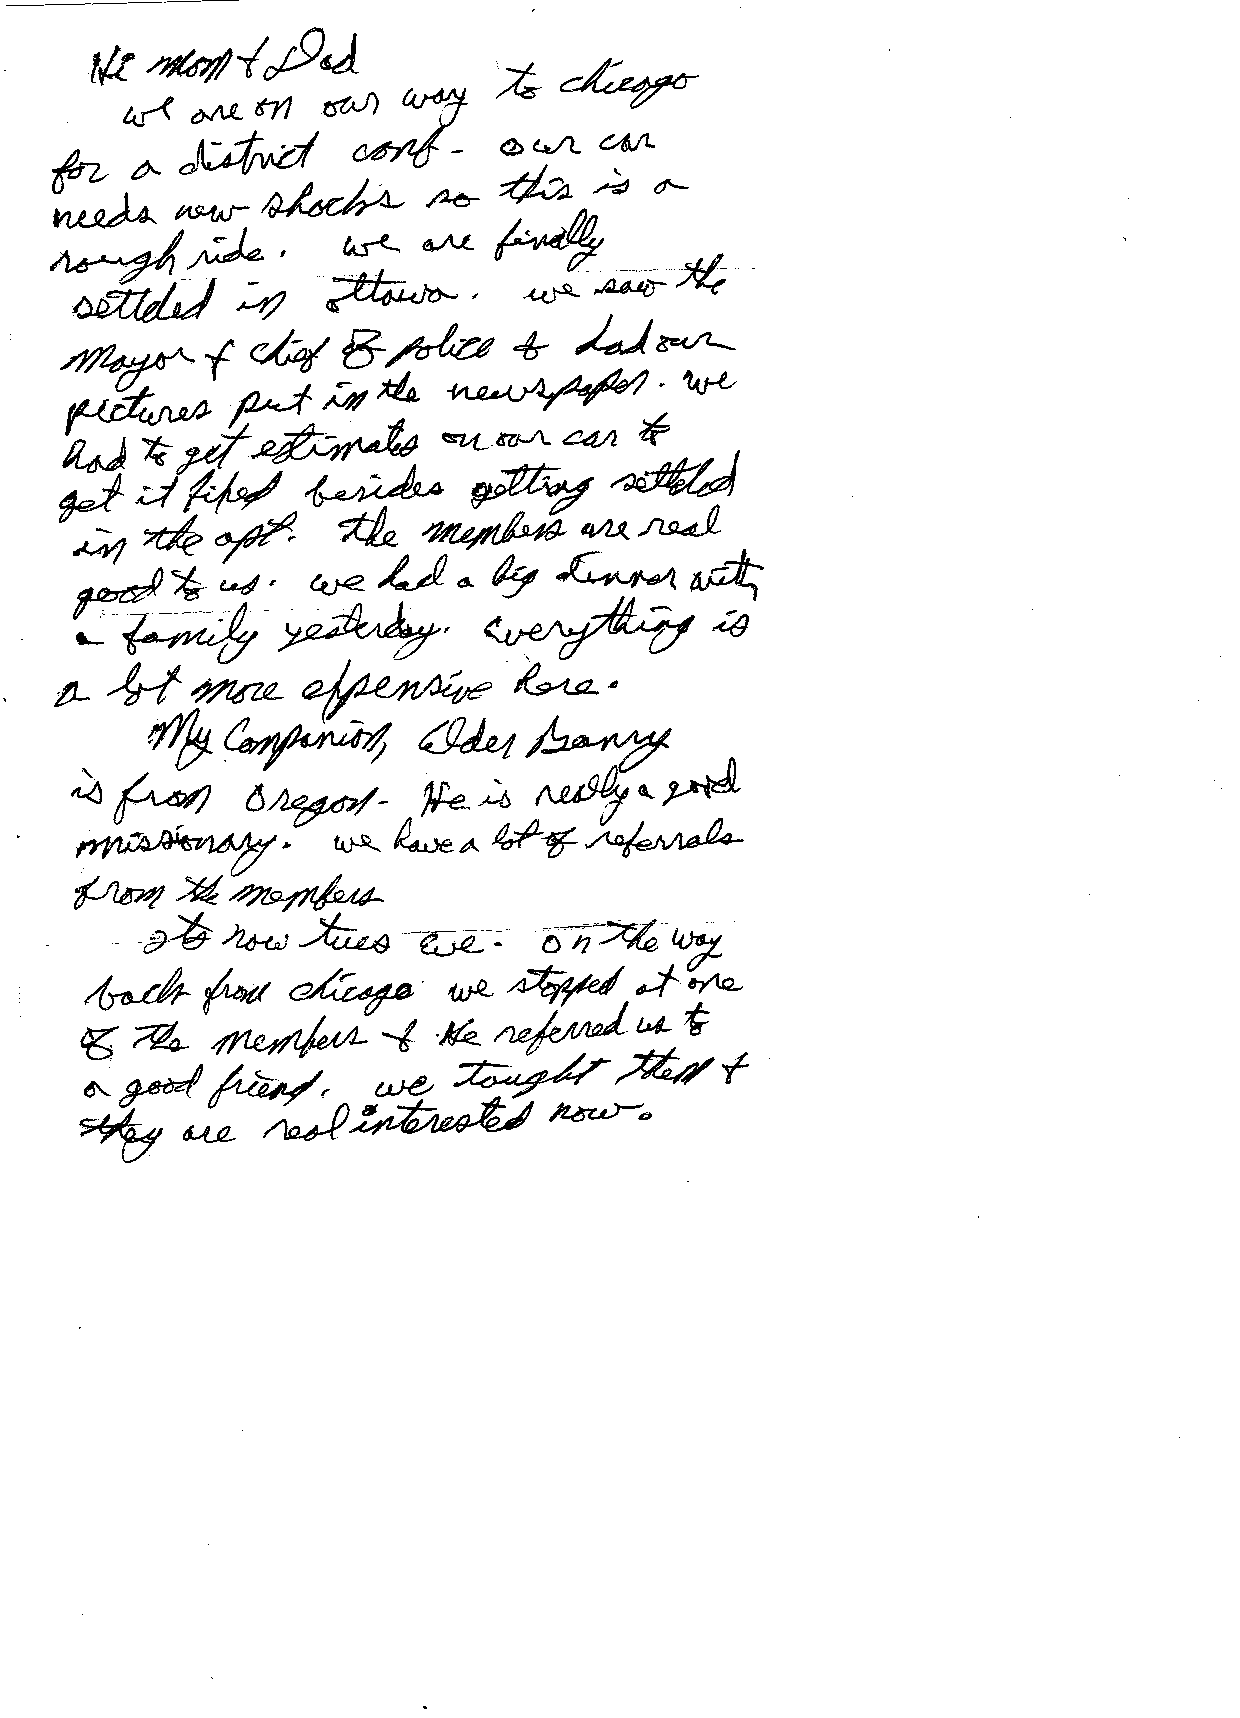 Hi Mom & Dad
we are on our way to chicago
for a district conf - our car
needs new shocks so this is a
rough ride. we are finally
settled in ottawa. we saw the
Mayor & chief of police & had our
pictures put in the newspaper. we
had to get estimates on our car to
get it fixed besides getting settled
in the apt. the members are real
good to us. we had a big dinner with
a family yesterday. everything is
a lot more expensive here.
My Companion, Elder
is from Oregon - He is really a good
missionary. we have a lot of referrals
from the members
Its now tues eve. on the way
back from chicago we stopped at one
of the members & He referred us to
a good friend. we taught them &
they are real interested now.